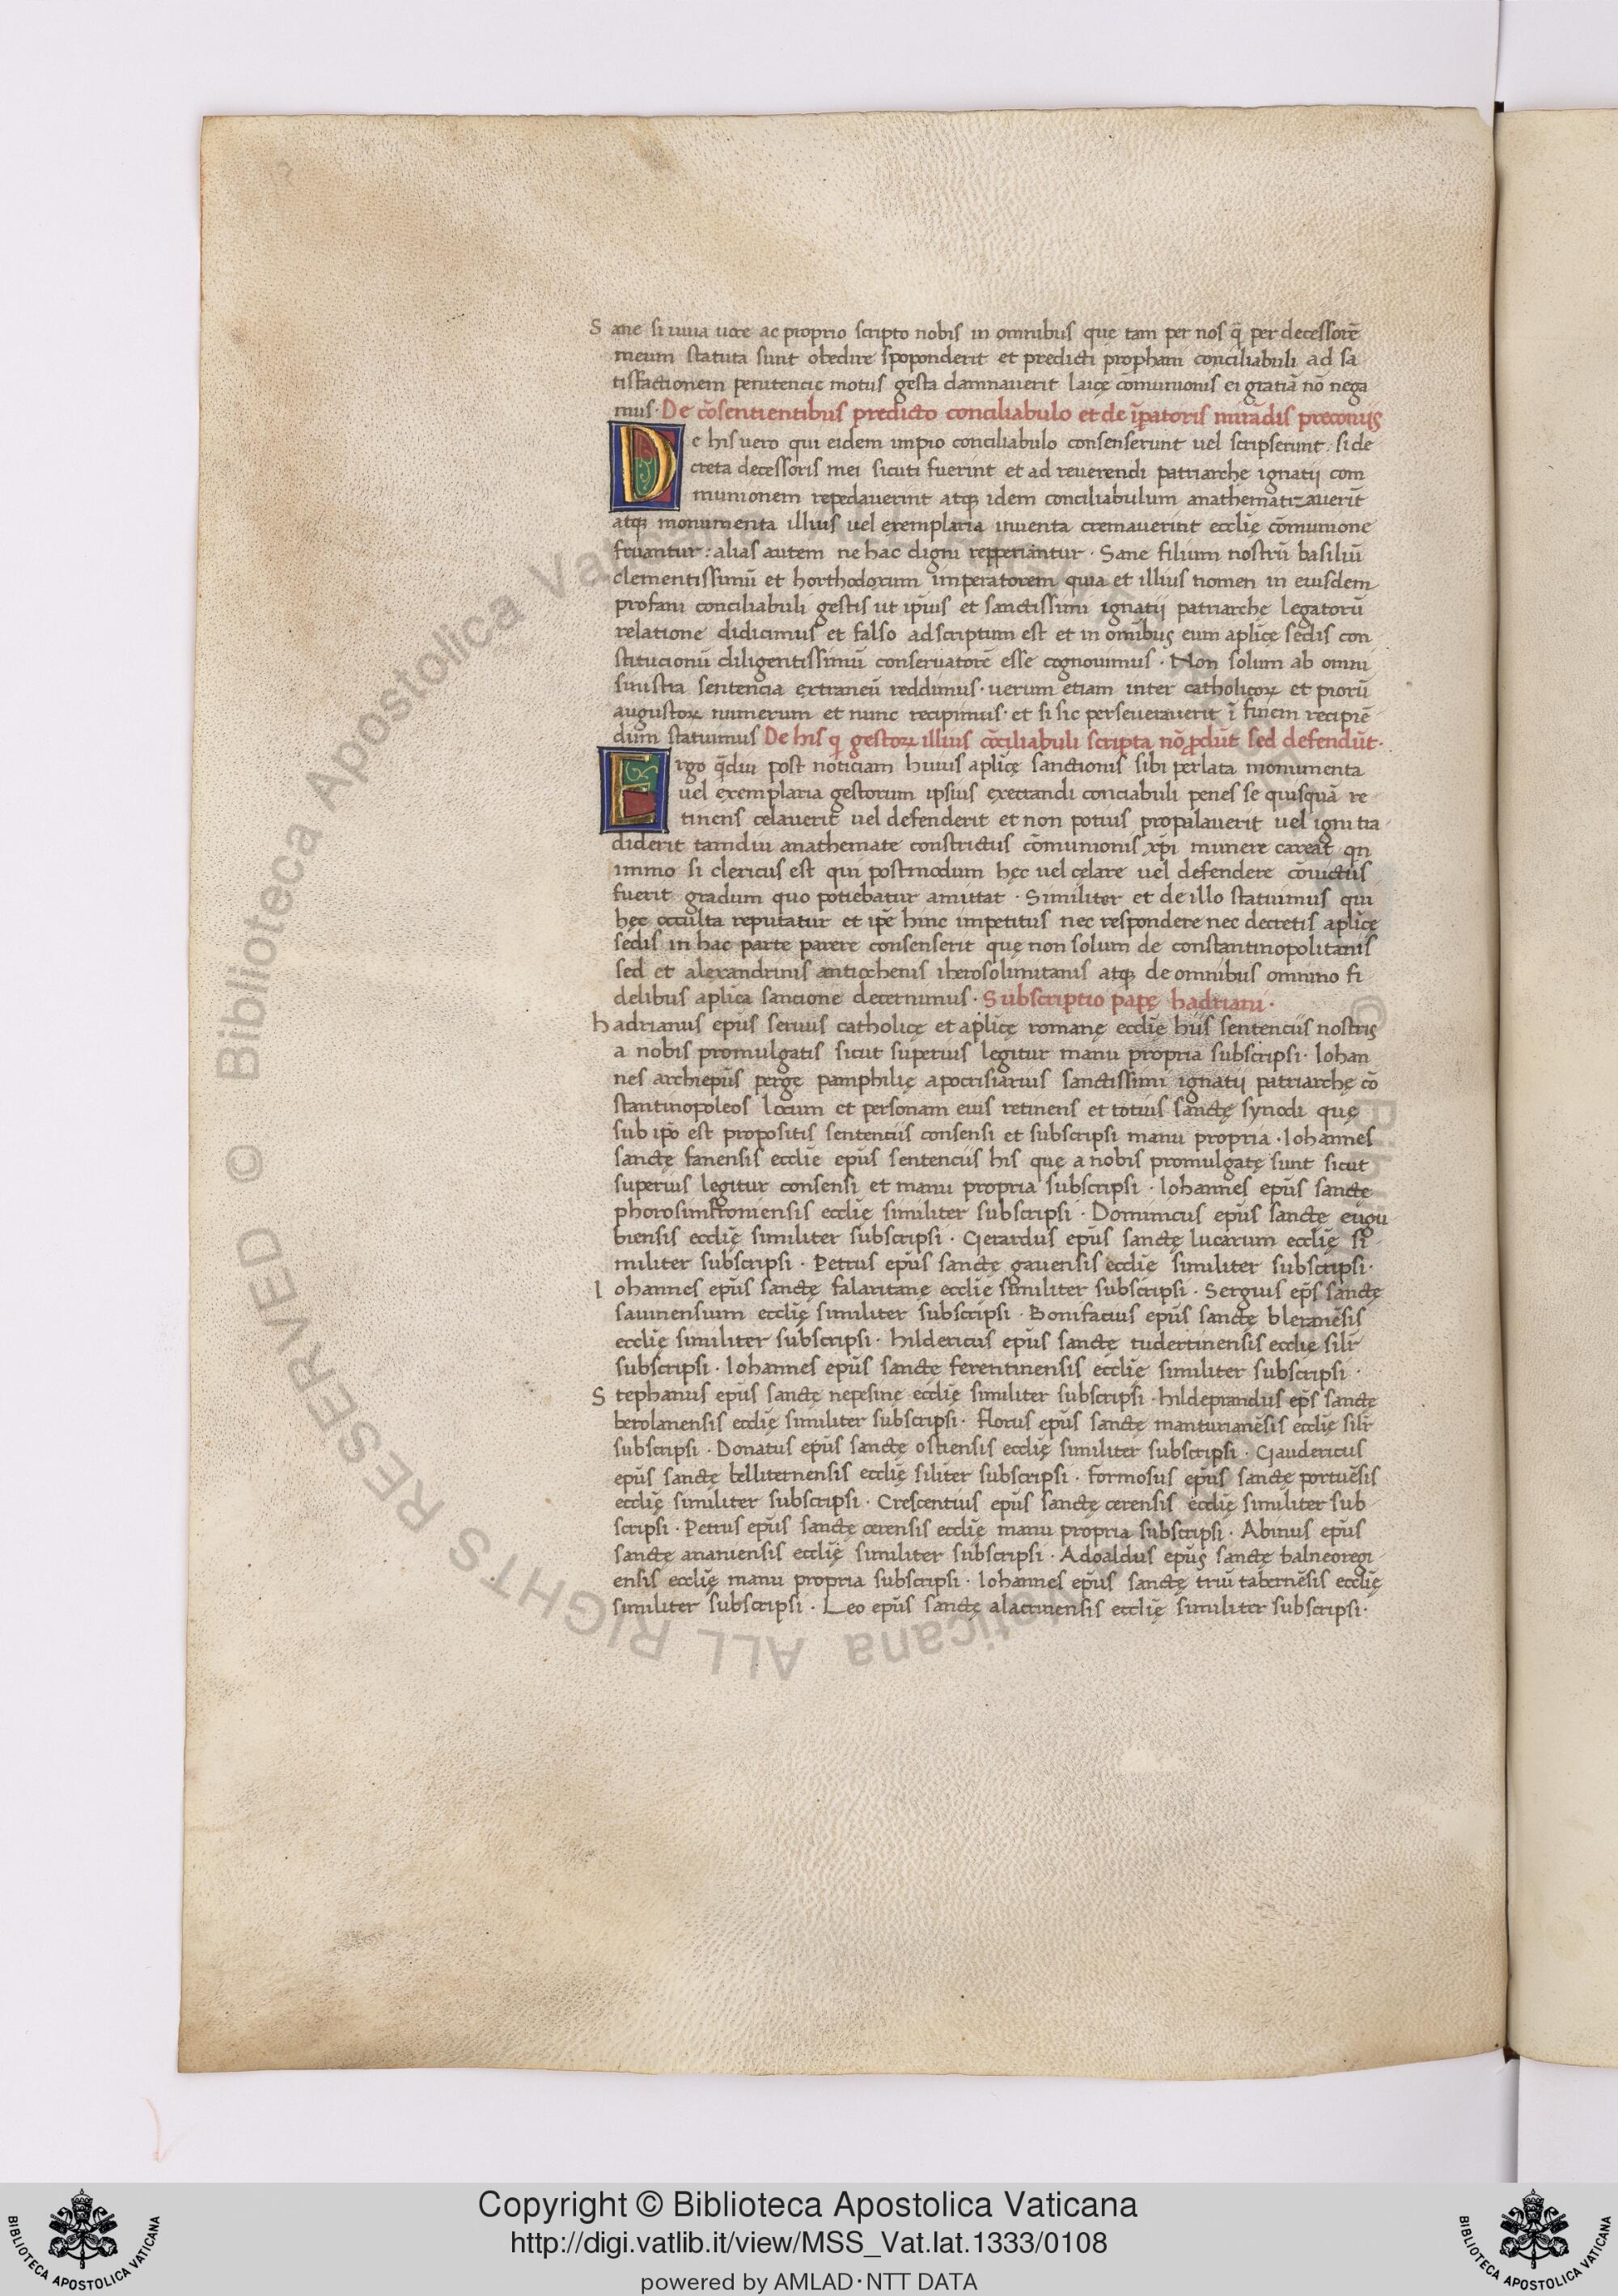 Sane si uiua uoce ac proprio scripto nobis in omnibus que tam per nos q̄ per decessorē
meum statuta sunt obedire spoponderit et predicti prophani conciliabuli ad sa
tisfactionem penitencie motus gesta damnauerit laicę cōmunionis ei gratiā nō nega
mus · De cōsentientibus predicto conciliabulo et de īpatoris mirādis preconijs
De his uero qui eidem impio conciliabulo consenserunt uel scripserunt · si de
creta decessoris mei sicuti fuerint et ad reuerendi patriarche ignatij com
munionem repedauerint atqꝫ idem conciliabulum anathematizauerīt
atqꝫ monumenta illius uel exemplaria inuenta cremauerint ecclīę cōmunione
fruantur : alias autem ne hac digni repperiantur · Sane filium nostrū basiliū
clementissimū et horthodoxum imperatorem quia et illius nomen in eiusdem
profani conciliabuli gestis ut ip̄ius et sanctissimi ignatij patriarchę legatorū
relatione didicimus et falso adscriptum est et in om̄ibus eum aplīcę sedis con
stitucionū diligentissimū conseruatorē esse cognouimus · Non solum ab omni
sinistra sentencia extraneū reddimus · uerum etiam inter catholicoꝝ et piorū
augustoꝝ numerum et nunc recipimus · et si sic perseuerauerit ī finem recipiē
dum statuimus De his q̄ gestoꝝ illius cōciliabuli scripta nō ꝓdūt sed defendūt ·
Ergo q̄diu post noticiam huius aplīcę sanctionis sibi perlata monumenta
uel exemplaria gestorum ipsius execrandi conciabuli penes se quisquā re
tinens celauerit uel defenderit et non potius propalauerit uel igni tra
diderit tamdiu anathemate constrictus cōmunionis xp̄i munere careat qn
immo si clericus est qui postmodum hęc uel cęlare uel defendere cōuictus
fuerit gradum quo potiebatur amittat · Similiter et de illo statuimus qui
hęc occulta reputatur et ip̄e hinc impetitus nec respondere nec decretis aplīcę
sedis in hac parte parere consenserit quę non solum de constantinopolitanis
sed et alexandrinis antiochenis iherosolimitanis atqꝫ de omnibus omnino fi
delibus aplīca sancione decernimus · Subscriptio papę hadriani ·
hadrianus ep̄us seruus catholicę et aplīcę romanę ecclīę hiis sentenciis nostris
a nobis promulgatis sicut superius legitur manu propria subscripsi · Iohan
nes archiep̄us pergę pamphilię apocrisiarius sanctissimi ignatij patriarchę cō
stantinopoleos locum et personam eius retinens et totius sanctę synodi quę
sub ip̄o est propositis sentenciis consensi et subscripsi manu propria · Iohannes
sanctę fanensis ecclīe ep̄us sentenciis his quę a nobis promulgatę sunt sicut
superius legitur consensi et manu propria subscripsi · Iohannes ep̄us sanctę
phorosimfroniensis ecclīę similiter subscripsi · Dominicus ep̄us sanctę eugu
biensis ecclīę similiter subscripsi · Gerardus ep̄us sanctę lucarum ecclīę si
militer subscripsi · Petrus ep̄us sanctę gauensis ecclīę similiter subscripsi ·
Iohannes ep̄us sanctę falaritanę ecclīe similiter subscripsi · Sergius ep̄s sanctę
sauinensium ecclīę similiter subscripsi · Bonifacius ep̄us sanctę bleranēsis
ecclīę similiter subscripsi · hildericus ep̄us sanctę tudertinensis ecclīę silr̄
subscripsi · Iohannes ep̄us sanctę ferentinensis ecclīę similiter subscripsi ·
Stephanus ep̄us sanctę nepesinę ecclīę similiter subscripsi · hildeprandus ep̄s sanctę
berolanensis ecclīę similiter subscripsi · florus ep̄us sanctę manturianēsis ecclīę silr̄
subscripsi · Donatus ep̄us sanctę ostiensis ecclīę similiter subscripsi · Gaudericus
ep̄us sanctę belliternensis ecclīę siliter subscripsi · formosus ep̄us sanctę portuēsis
ecclīę similiter subscripsi · Crescentius ep̄us sanctę cerensis ecclīę similiter sub
scripsi · Petrus ep̄us sanctę cerensis ecclīę manu propria subscripsi · Abinus ep̄us
sanctę ananiensis ecclīę similiter subscripsi · Adoaldus ep̄us sanctę balneoregi
ensis ecclīę manu propria subscripsi · Iohannes ep̄us sanctę triū tabernēsis ecclīę
similiter subscripsi · Leo ep̄us sanctę alactinensis ecclīę similiter subscripsi ·
© Biblioteca Apostolica Vaticana ALL RIGHTS RESERVED
Copyright © Biblioteca Apostolica Vaticana
http://digi.vatlib.it/view/MSS_Vat.lat.1333/0108
powered by AMLAD·NTT DATA
BIBLIOTECA APOSTOLICA VATICANA
BIBLIOTECA APOSTOLICA VATICANA